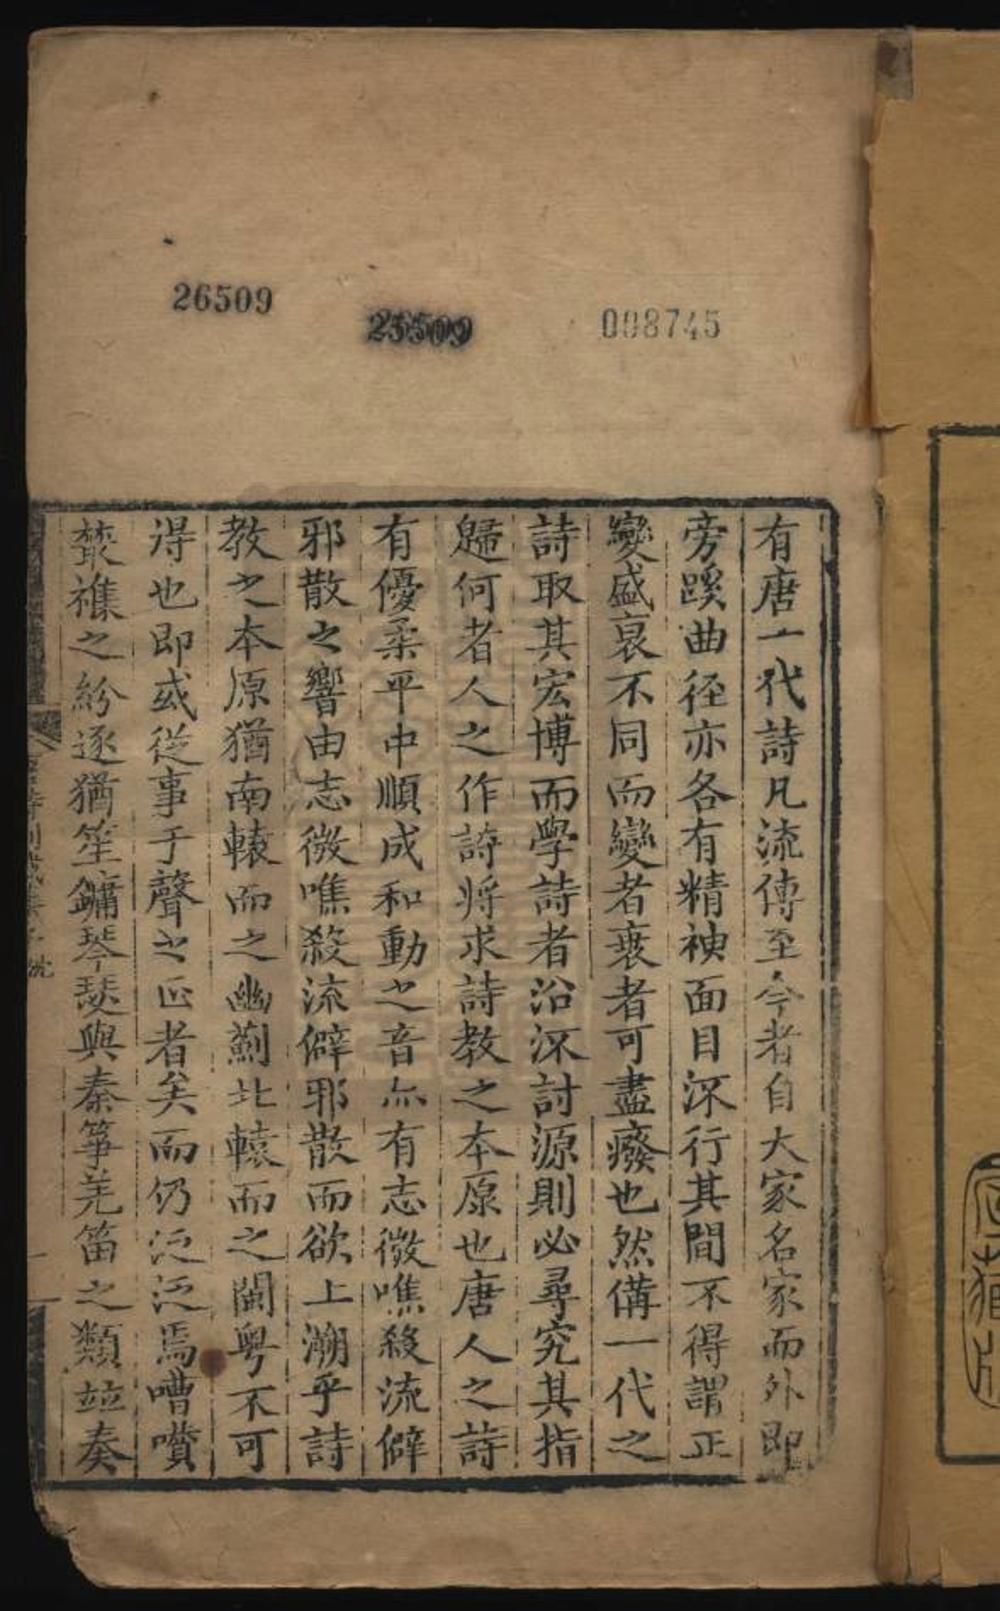 26509
25509
008745
有唐一代詩凡流傳至今者自大家名家而外即
旁蹊曲徑亦各有精神面目㴱行其間不得謂正
變盛衰不同而變者衰者可盡癈也然備一代之
詩取其宏博而學詩者沿㴱討源則必尋究其指
歸何者人之作詩將求詩教之本原也唐人之詩
有優柔平中順成和動之音亦有志微噍殺流僻
邪散之響由志微噍殺流僻邪散而欲上溯乎詩
教之本原猶南轅而之幽薊北轅而之閩粤不可
得也即或從事于聲之正者矣而仍泛泛焉嘈囋
叢襍之紛逐猶笙鏞琴瑟與秦箏羌笛之類竝奏